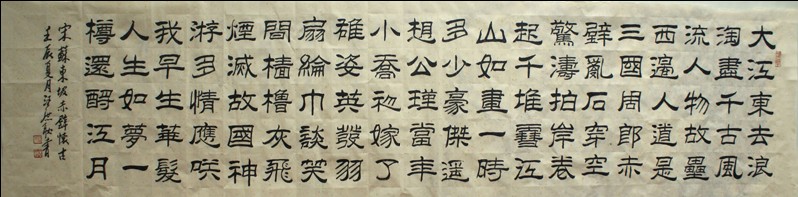 大江東去浪
淘盡千古風
流人物故壘
西邊人道是
三國周郎赤
壁亂石穿空
驚濤拍岸卷
起千堆雪江
山如畫一時
多少豪傑遥
想公瑾當年
小喬初嫁了
雄姿英發羽
扇綸巾談笑
間檣櫓灰飛
煙滅故國神
游多情應咲
我早生華髮
人生如夢一
樽還酹江月
宋蘇東坡赤壁懷古
壬辰夏月書